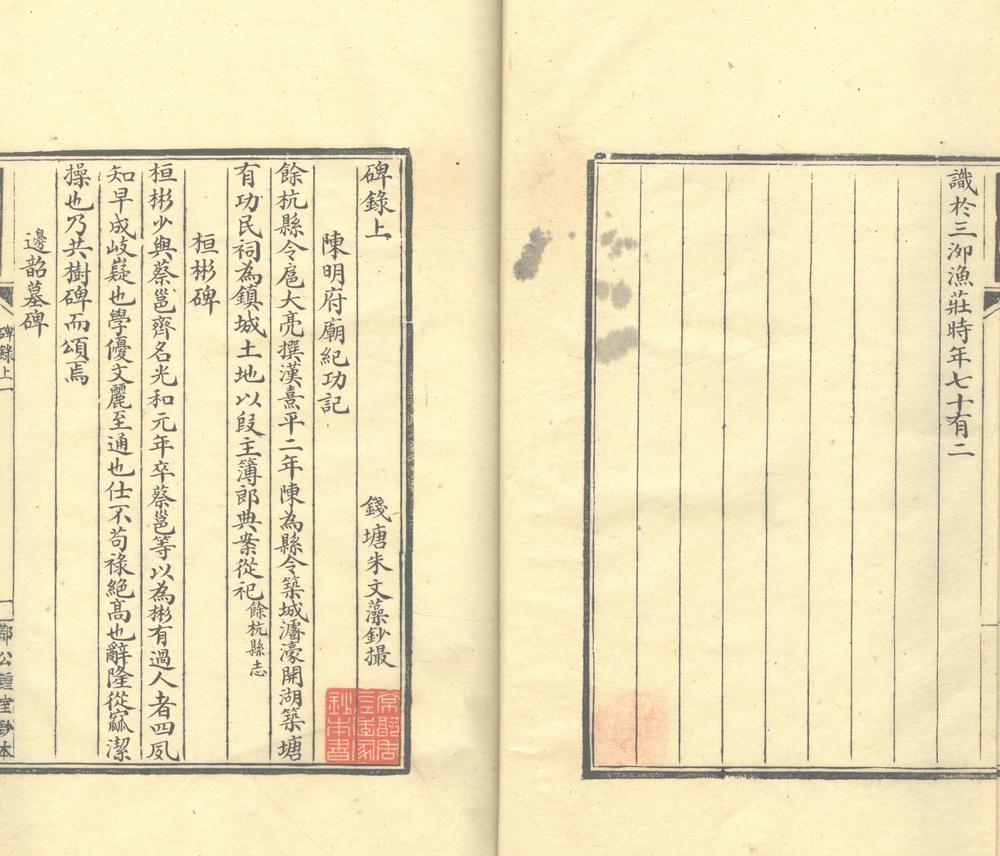 識於三泖漁莊時年七十有二
碑錄上
錢塘朱文藻鈔撮
陳明府廟紀功記
餘杭縣令扈大亮撰漢熹平二年陳為縣令築城濬濠開湖築塘
有功民祠為鎮城土地以段主簿郎典案從祀餘杭縣志
桓彬碑
桓彬少與蔡邕齊名光和元年卒蔡邕等以為彬有過人者四夙
知早成岐嶷也學優文麗至通也仕不苟祿絕高也辭隆從窳潔
操也乃共樹碑而頌焉
邊韶墓碑
碑錄上
一
公鍾室鈔本